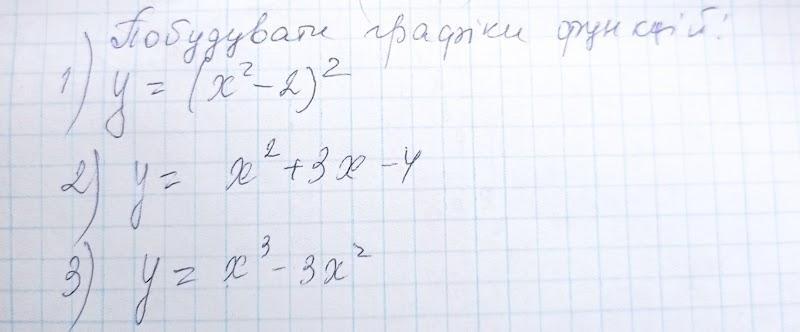 Побудувати графіки функцій:
1) y = (x² - 2)²
2) y = x² + 3x - 4
3) y = x³ - 3x²